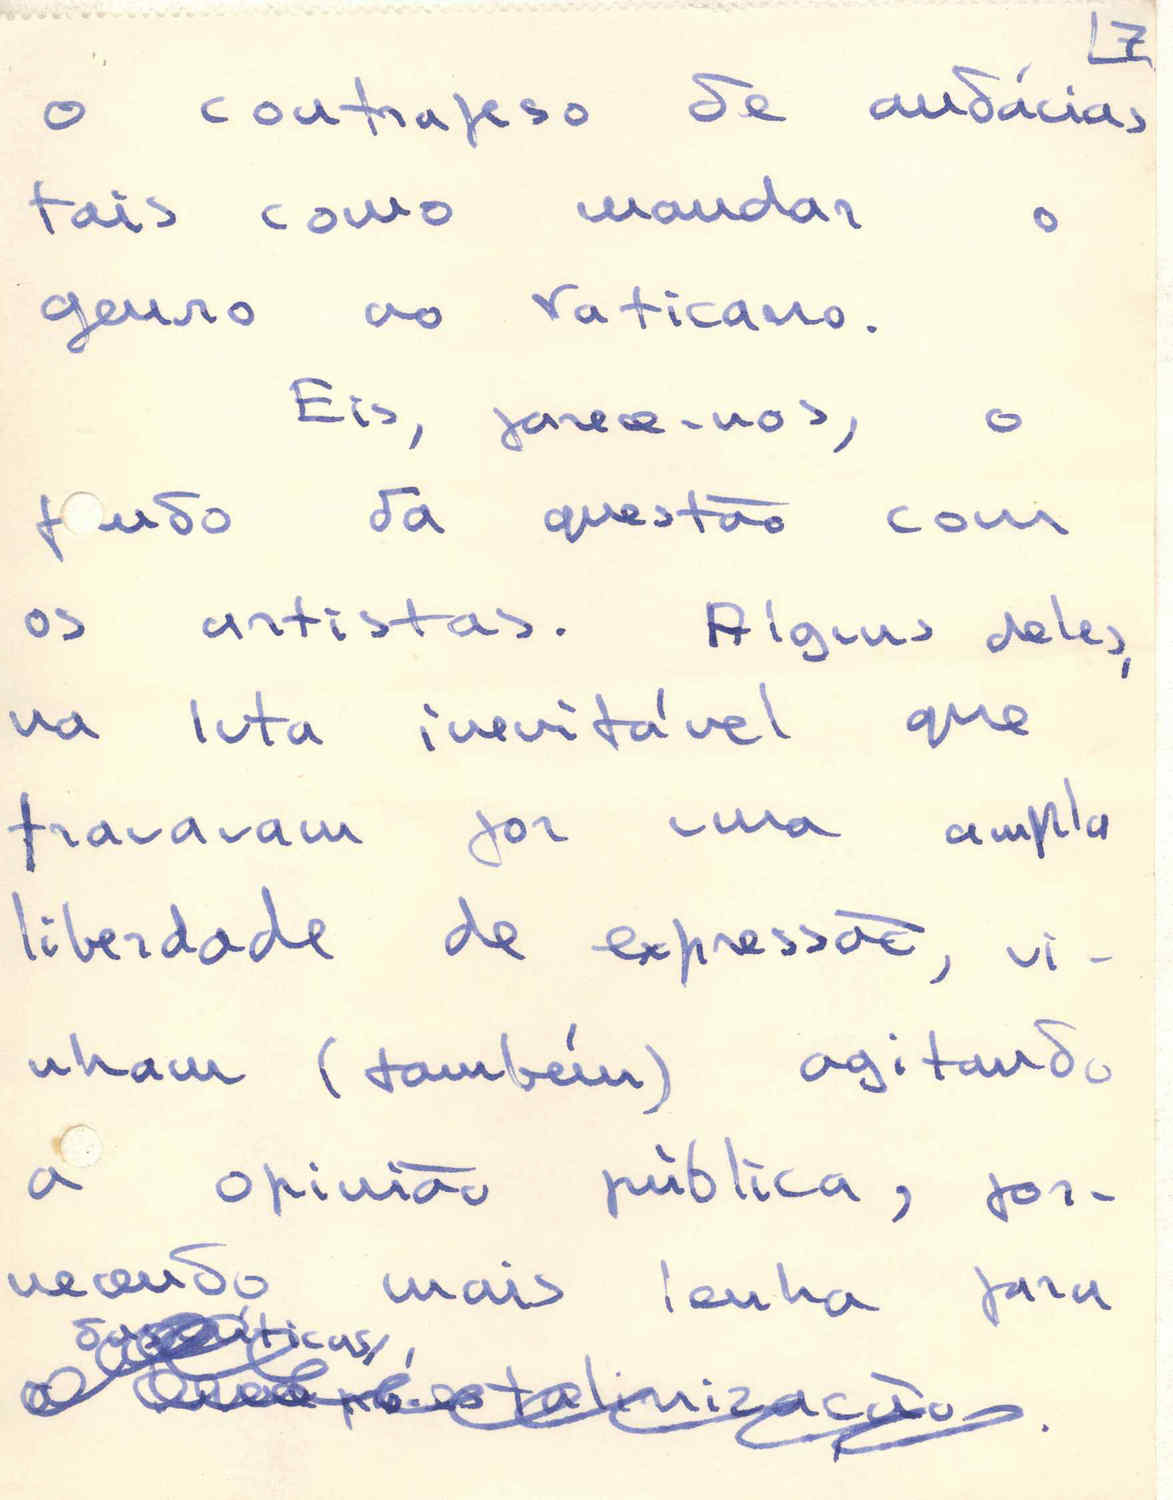 7
o contrapeso de audácias
tais como mandar o
genro ao Vaticano.
Eis, parece-nos, o
fundo da questão com
os artistas. Alguns deles,
na luta inevitável que
travavam por uma ampla
liberdade de expressão, vi-
nham (também) agitando
a opinião pública, for-
necendo mais lenha para